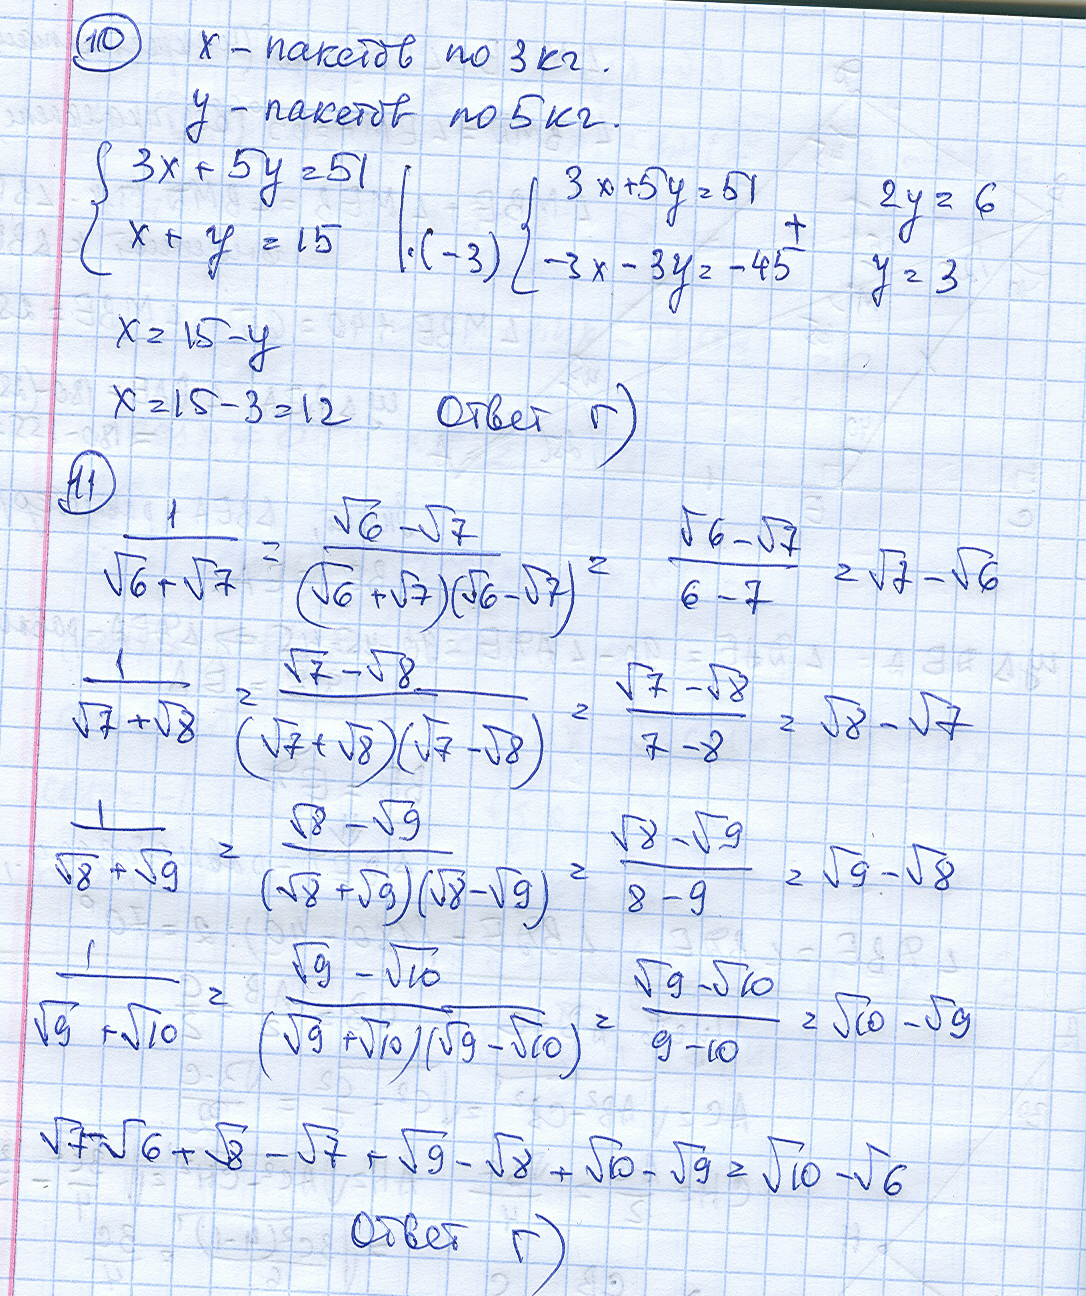 10 x - пакетов по 3 кг.
y - пакетов по 5 кг.
{ 3x + 5y = 51 | { 3x + 5y = 51 + 2y = 6
x + y = 15 | ·(-3) -3x - 3y = -45 y = 3
x = 15 - y
x = 15 - 3 = 12 Ответ Г)
11
1/(√6 + √7) = (√6 - √7)/((√6 + √7)(√6 - √7)) = (√6 - √7)/(6 - 7) = √7 - √6
1/(√7 + √8) = (√7 - √8)/((√7 + √8)(√7 - √8)) = (√7 - √8)/(7 - 8) = √8 - √7
1/(√8 + √9) = (√8 - √9)/((√8 + √9)(√8 - √9)) = (√8 - √9)/(8 - 9) = √9 - √8
1/(√9 + √10) = (√9 - √10)/((√9 + √10)(√9 - √10)) = (√9 - √10)/(9 - 10) = √10 - √9
√7 - √6 + √8 - √7 + √9 - √8 + √10 - √9 = √10 - √6
Ответ Г)